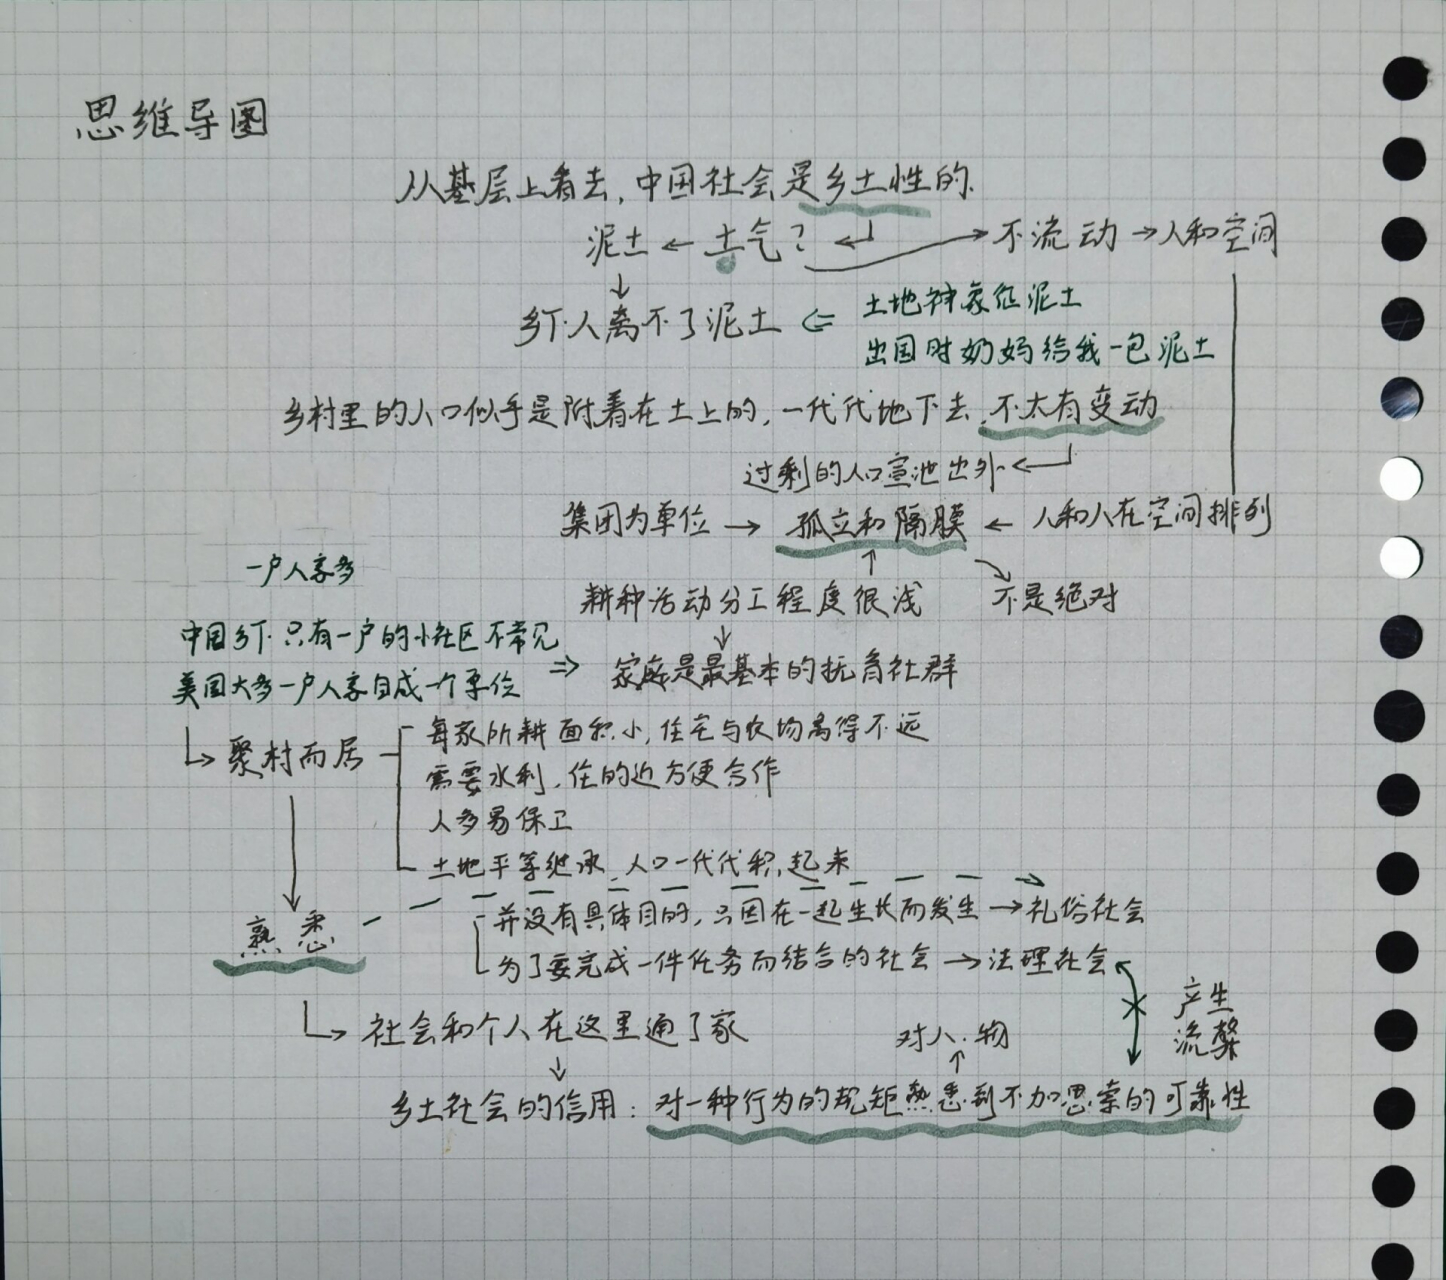 思维导图
从基层上看去,中国社会是乡土性的.
泥土 ← 土气? ↵ → 不流动 → 人和空间
↓
乡下人离不了泥土 ⇐ 土地神象征泥土
出国时奶妈给我一包泥土
乡村里的人口似乎是附着在土上的,一代代地下去,不太有变动
过剩的人口宣泄出外 ←
集团为单位 → 孤立和隔膜 ← 人和人在空间排列
一户人家多
耕种活动分工程度很浅 不是绝对
中国乡下只有一户的小社区不常见
美国大多一户人家自成一个单位 ⇒ 家庭是最基本的抚育社群
每家所耕面积小,住宅与农场离得不远
↳ 聚村而居
需要水利,住的近方便合作
人多易保卫
土地平等继承,人口一代代积起来
熟悉
并没有具体目的,只因在一起生长而发生 → 礼俗社会
为了要完成一件任务而结合的社会 → 法理社会
产生
流弊
↳ 社会和个人在这里通了家
对人.物
↓
乡土社会的信用:对一种行为的规矩熟悉到不加思索的可靠性